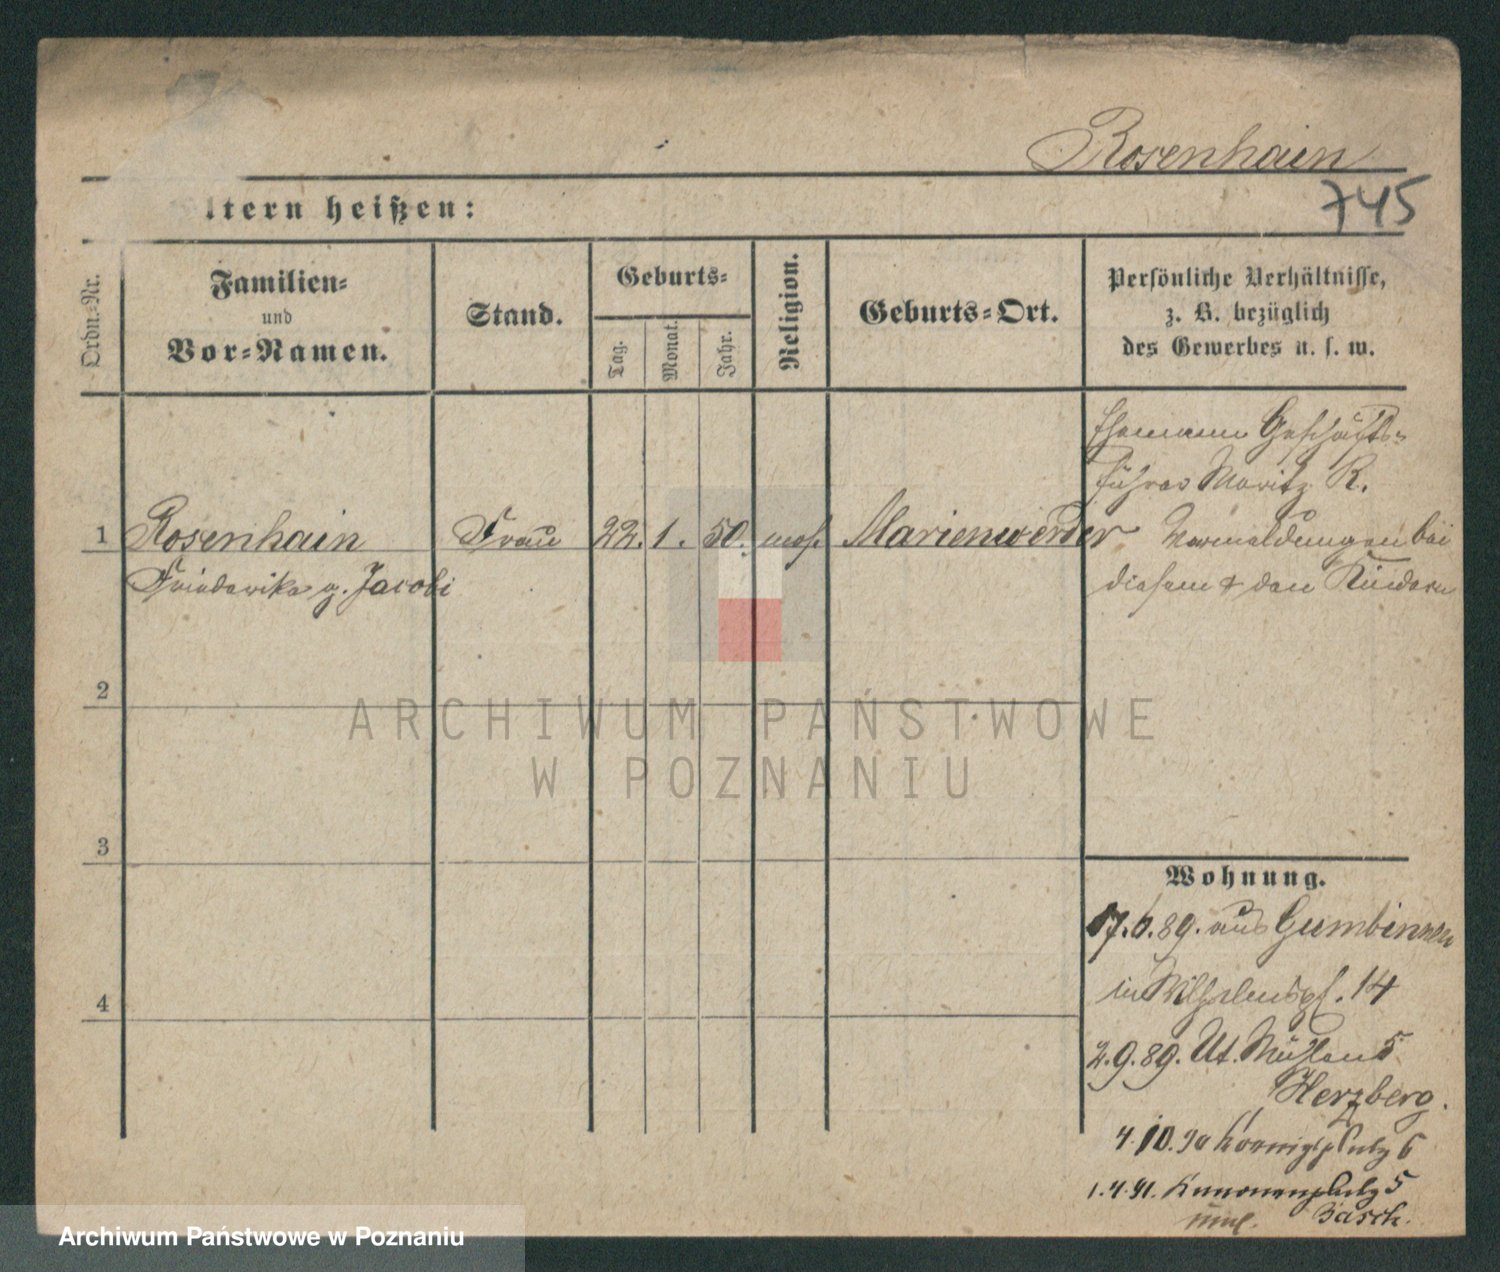 Rosenhain
745
ltern heißen:
Ordn.-Nr.
Familien-
und
Vor-Namen.
Stand.
Geburts-
Tag.
Monat.
Jahr.
Religion.
Geburts-Ort.
Persönliche Verhältnisse,
z. B. bezüglich
des Gewerbes u. s. w.
Ehemann Geschäfts-
führer Moritz R.
1 Rosenhain Frau 22. 1. 50. mos. Marienwerder
Vermeldungen bei
Friederike g. Jacobi
diesem & den Kindern
2
ARCHIWUM PAŃSTWOWE
W POZNANIU
3
Wohnung.
17.6.89. aus Gumbinnen
in Wilhelmspl. 14
4
2.9.89. Ut. Mühlen 5
Herzberg.
4.10.90 Koenigsplatz 6
1.4.91. Kanonenplatz 5
Basch.
Archiwum Państwowe w Poznaniu